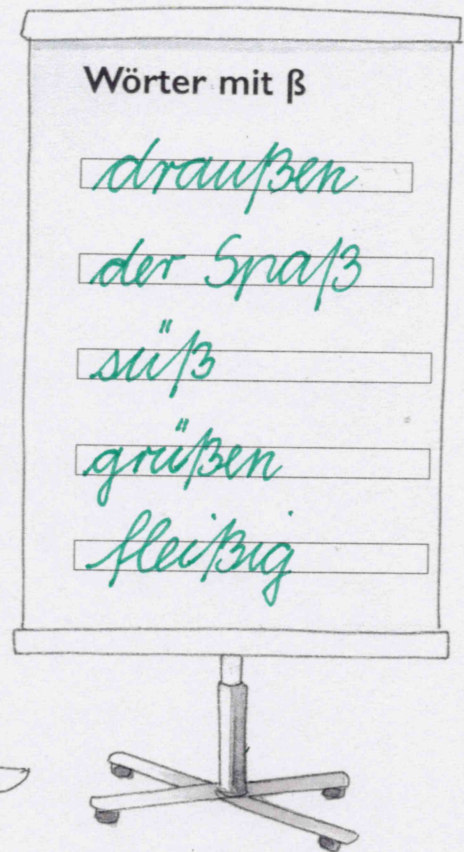 Wörter mit ß
draußen
der Spaß
süß
grüßen
fleißig